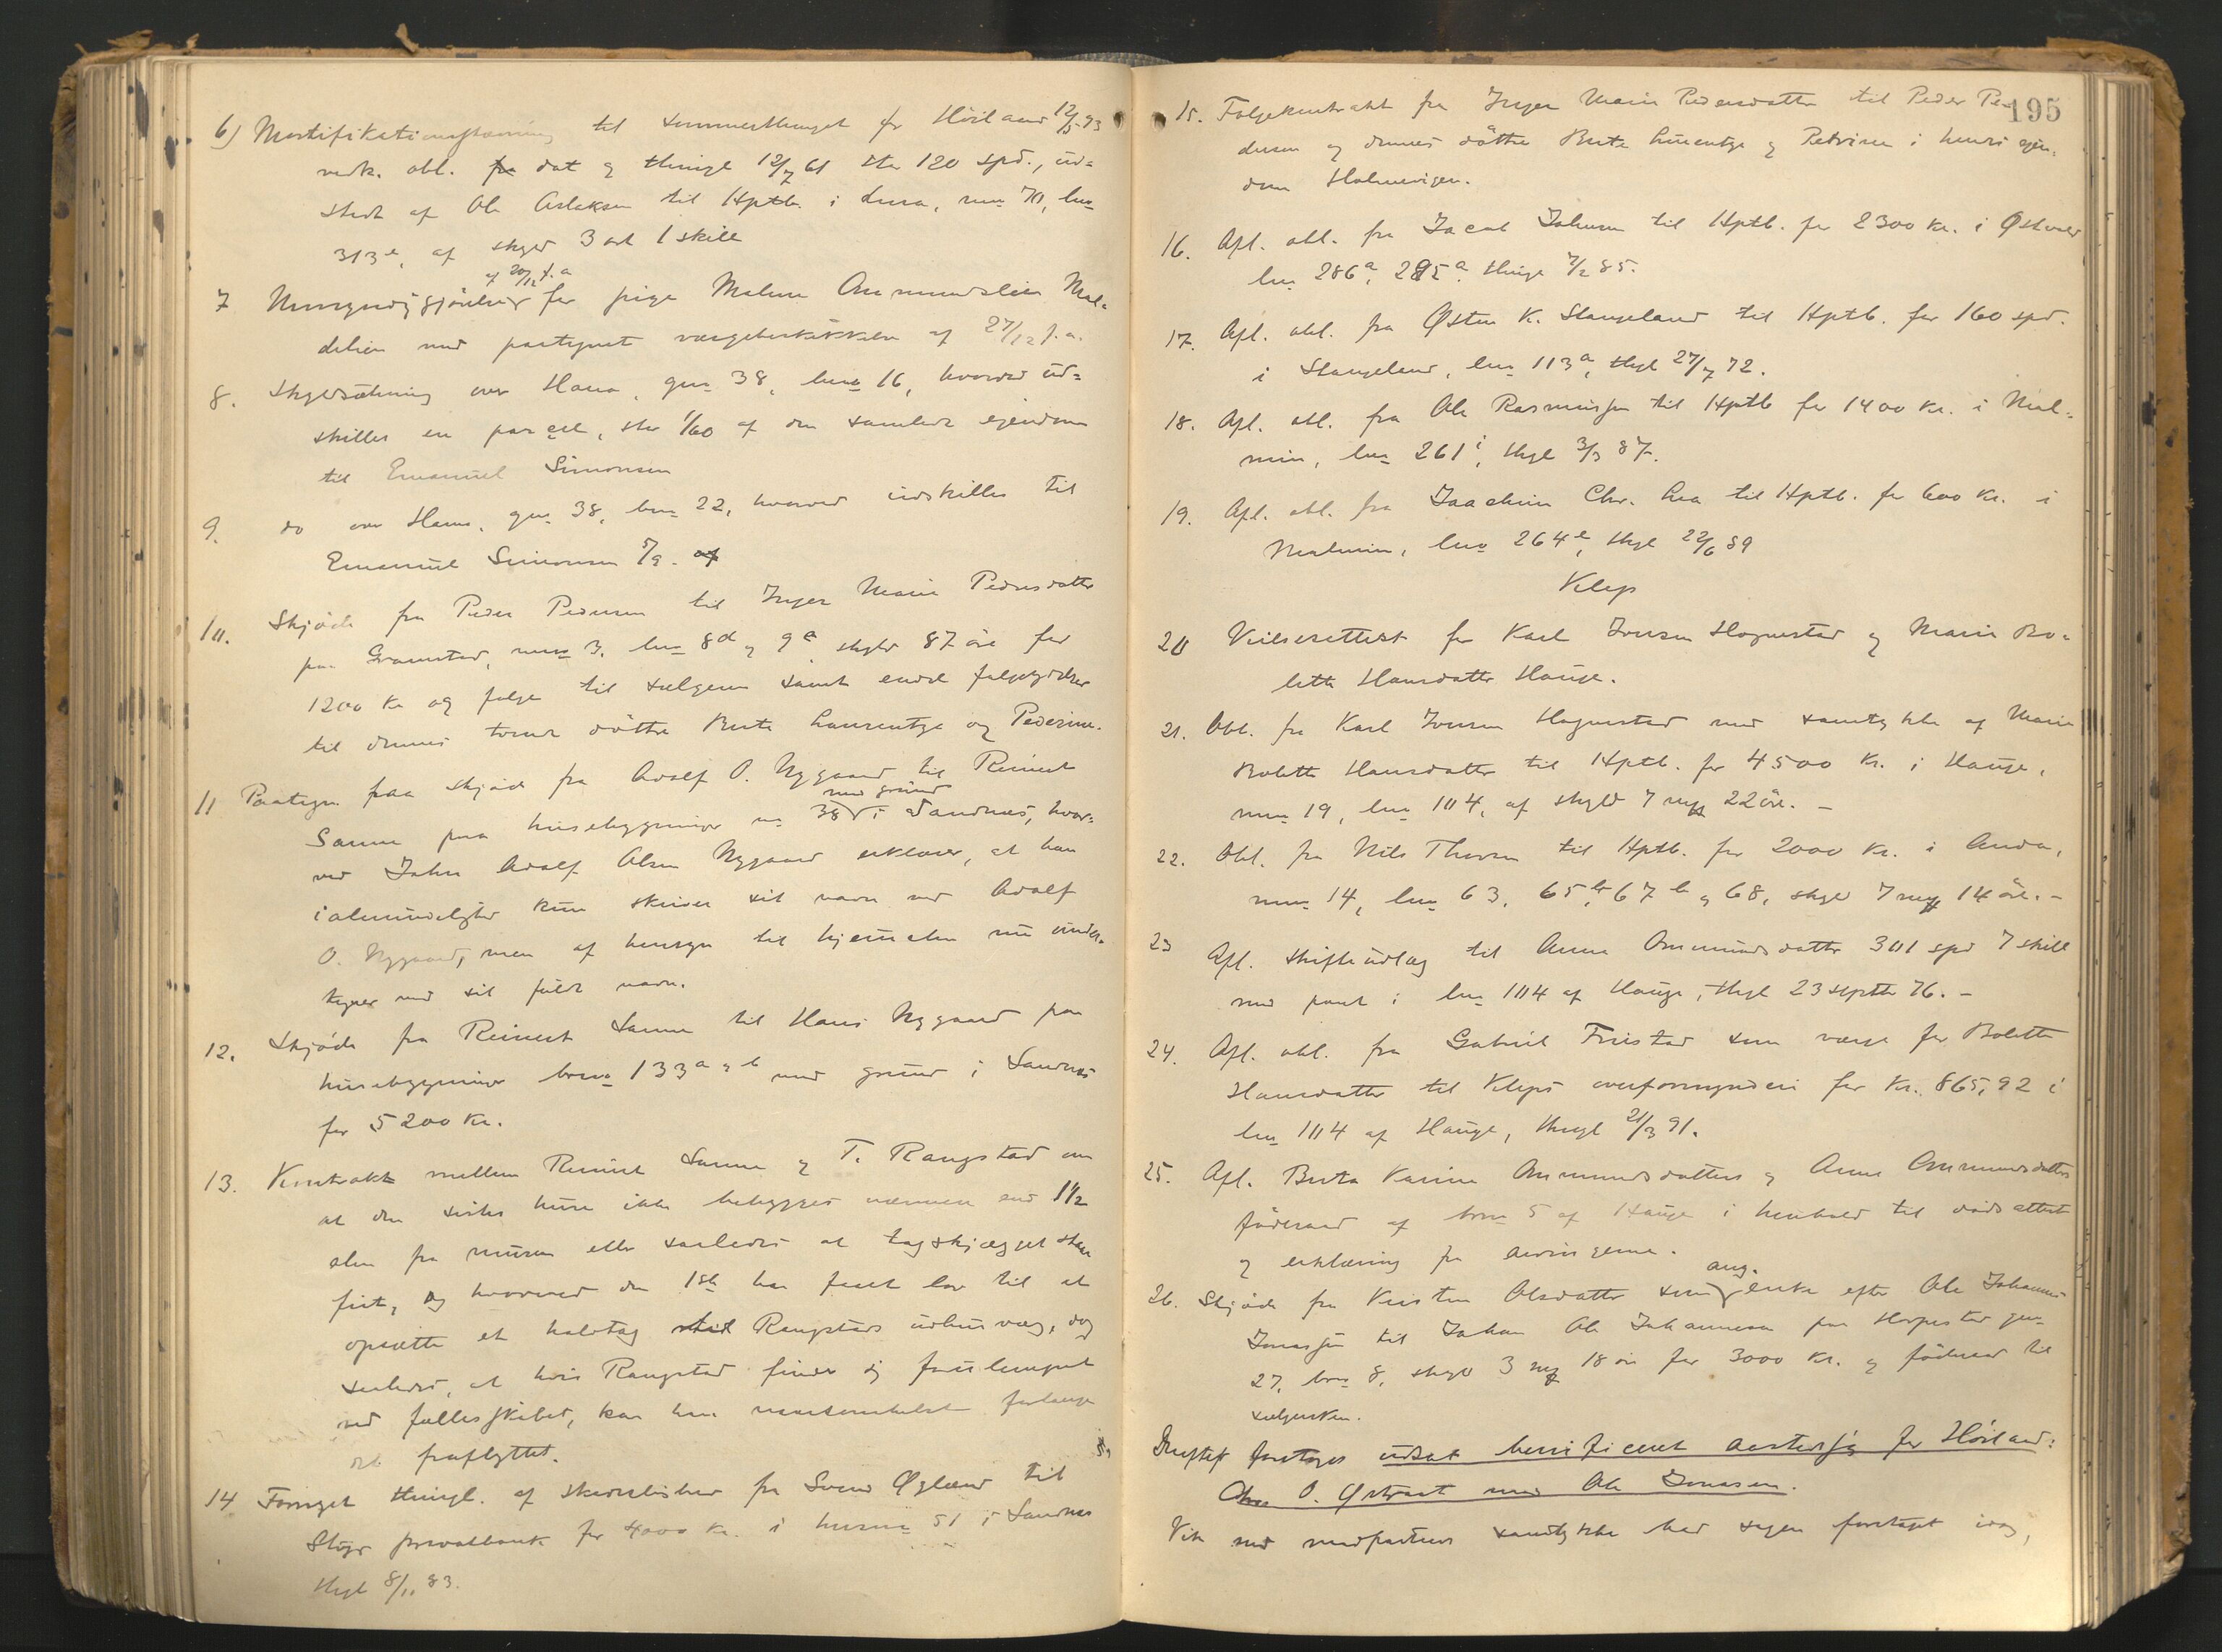 6) Mortifikationsstævning til sommerthinget for Höiland 12/5 93
vedk. obl. fra dat og thingl 12/7 61 stor 120 spd., ud=
stedt af Ole Aslaksen til Hptb. i Lura, mno 70, lno
313e, af skyld 3 ort 1 skill
af 20/12 f.a
7 Umyndiggjörelse for pige Malene Ommundslien Mal=
delien med paategnet værgebeskikkelse af 27/12 f.a.
8. Skyldsætning over Hana, gno 38, bno 16, hvorved ud=
skilles en parcel, stor 1/60 af den samlede ejendom
til Emanuel Simonsen
9. do over Hana, gno 38, bno 22, hvorved udskilles til
Emanuel Simonsen 5/9.
10. Skjöde fra Peder Pedersen til Inger Marie Pedersdatter
paa Gramstad, mno 3, lno 8d og 9a skyld 87 öre for
1200 Kr og folge til sælgeren samt endel folgeydelser
til dennes tvende döttre Berte Laurentze og Pederine.
11 Paategn paa skjöde fra Adolf O. Nygaard til Reinert
med grund
Sanne paa husebygninger no 38 i Sandnes, hvor=
ved John Adolf Olsen Nygaard erklærer, at han
i almindelighed kun skriver sit navn med Adolf
O. Nygaard, men af hensyn til hjemmelen nu under=
tegner med sit fulde navn.
12. Skjöde fra Reinert Sanne til Hans Nygaard paa
husebygninger brno 133a og b med grund i Sandnes
for 5200 Kr.
13. Kontrakt mellem Reinert Sanne og T. Rangstad om
at den sistes huse ikke bebygges nærmere end 1 1/2
alen fra muren eller saaledes at tagskjægget staar
frit, og hvorved den 1ste har faaet lov til at
opsætte et halvtag Rangstads udhusvæg, dog
saaledes, at hvis Rangstad finder sig forulempet
ved fællesskabet, kan han naarsomhelst forlange
det fraflyttet.
14 Fornyet thingl. af skadeslösbrev fra Svend Øglænd til
Stvgr privatbank for 4000 Kr. i husno 51 i Sandnes
thgl 8/11 83.
195
15. Folgekontrakt fra Inger Marie Pedersdatter til Peder Pe-
dersen og dennes döttre Berte Laurentze og Petrine i hendes ejen=
dom Holmevigen.
16. Afl. obl. fra Jacob Johnsen til Hptb. for 2300 Kr. i
lno 286a, 285a, thingl 7/2 85.
17. Afl. obl. fra Østen K. Stangeland til Hptb. for 160 spd.
i Stangeland, lno 113a, thgl 27/7 72.
18. Afl. obl. fra Ole Rasmussen til Hptb for 1400 Kr. i Mal=
min, lno 261i, thgl 3/3 87.
19. Afl. obl. fra Joachim Chr. Lea til Hptb. for 600 Kr. i
Malmin, lno 264e, thgl 22/6 89
Klep
20 Vielsesattest for Karl Iversen Hognestad og Marie Bo=
lette Hansdatter Hauge.
21. Obl. fra Karl Iversen Hognestad med samtykke af Marie
Bolette Hansdatter til Hptb. for 4500 Kr. i Hauge,
mno 19, lno 104, af skyld 7 mrk 22 öre. –
22. Obl. fra Nils Thorsen til Hptb. for 2000 Kr. i Anda,
mno 14, lno 63, 65b, 67b og 68, skyld 7 mrk 14 öre. –
23 Afl. skifteudlæg til Anna Ommundsdatter 301 spd 7 skill
med pant i lno 104 af Hauge, thgl 23 septbr 76. –
24. Afl. obl. fra Gabriel Friestad som værge for Bolette
Hansdatter til Kleps overformynderi for Kr. 865,92 i
lno 104 af Hauge, thingl 21/3 91.
25. Afl. Berta Karine Ommundsdatters og Anne Ommundsdatters
föderaad af brno 5 af Hauge i henhold til dödsattest
og erklæring fra arvingerne.
ang.
26. Skjöde fra Kirsten Olsdatter som enke efter Ole Johannes
Jonassen til Johan Ole Johannesen paa gno
27, bno 8, skyld 3 mrk 18 öre for 3000 Kr. og föderaad til
sælgersken.
Derefter foretoges udsat benificeret aastedssag for Höiland:
O. Østraat mod Ole Jonassen.
Vik med modpartens samtykke bad sagen foretaget idag,